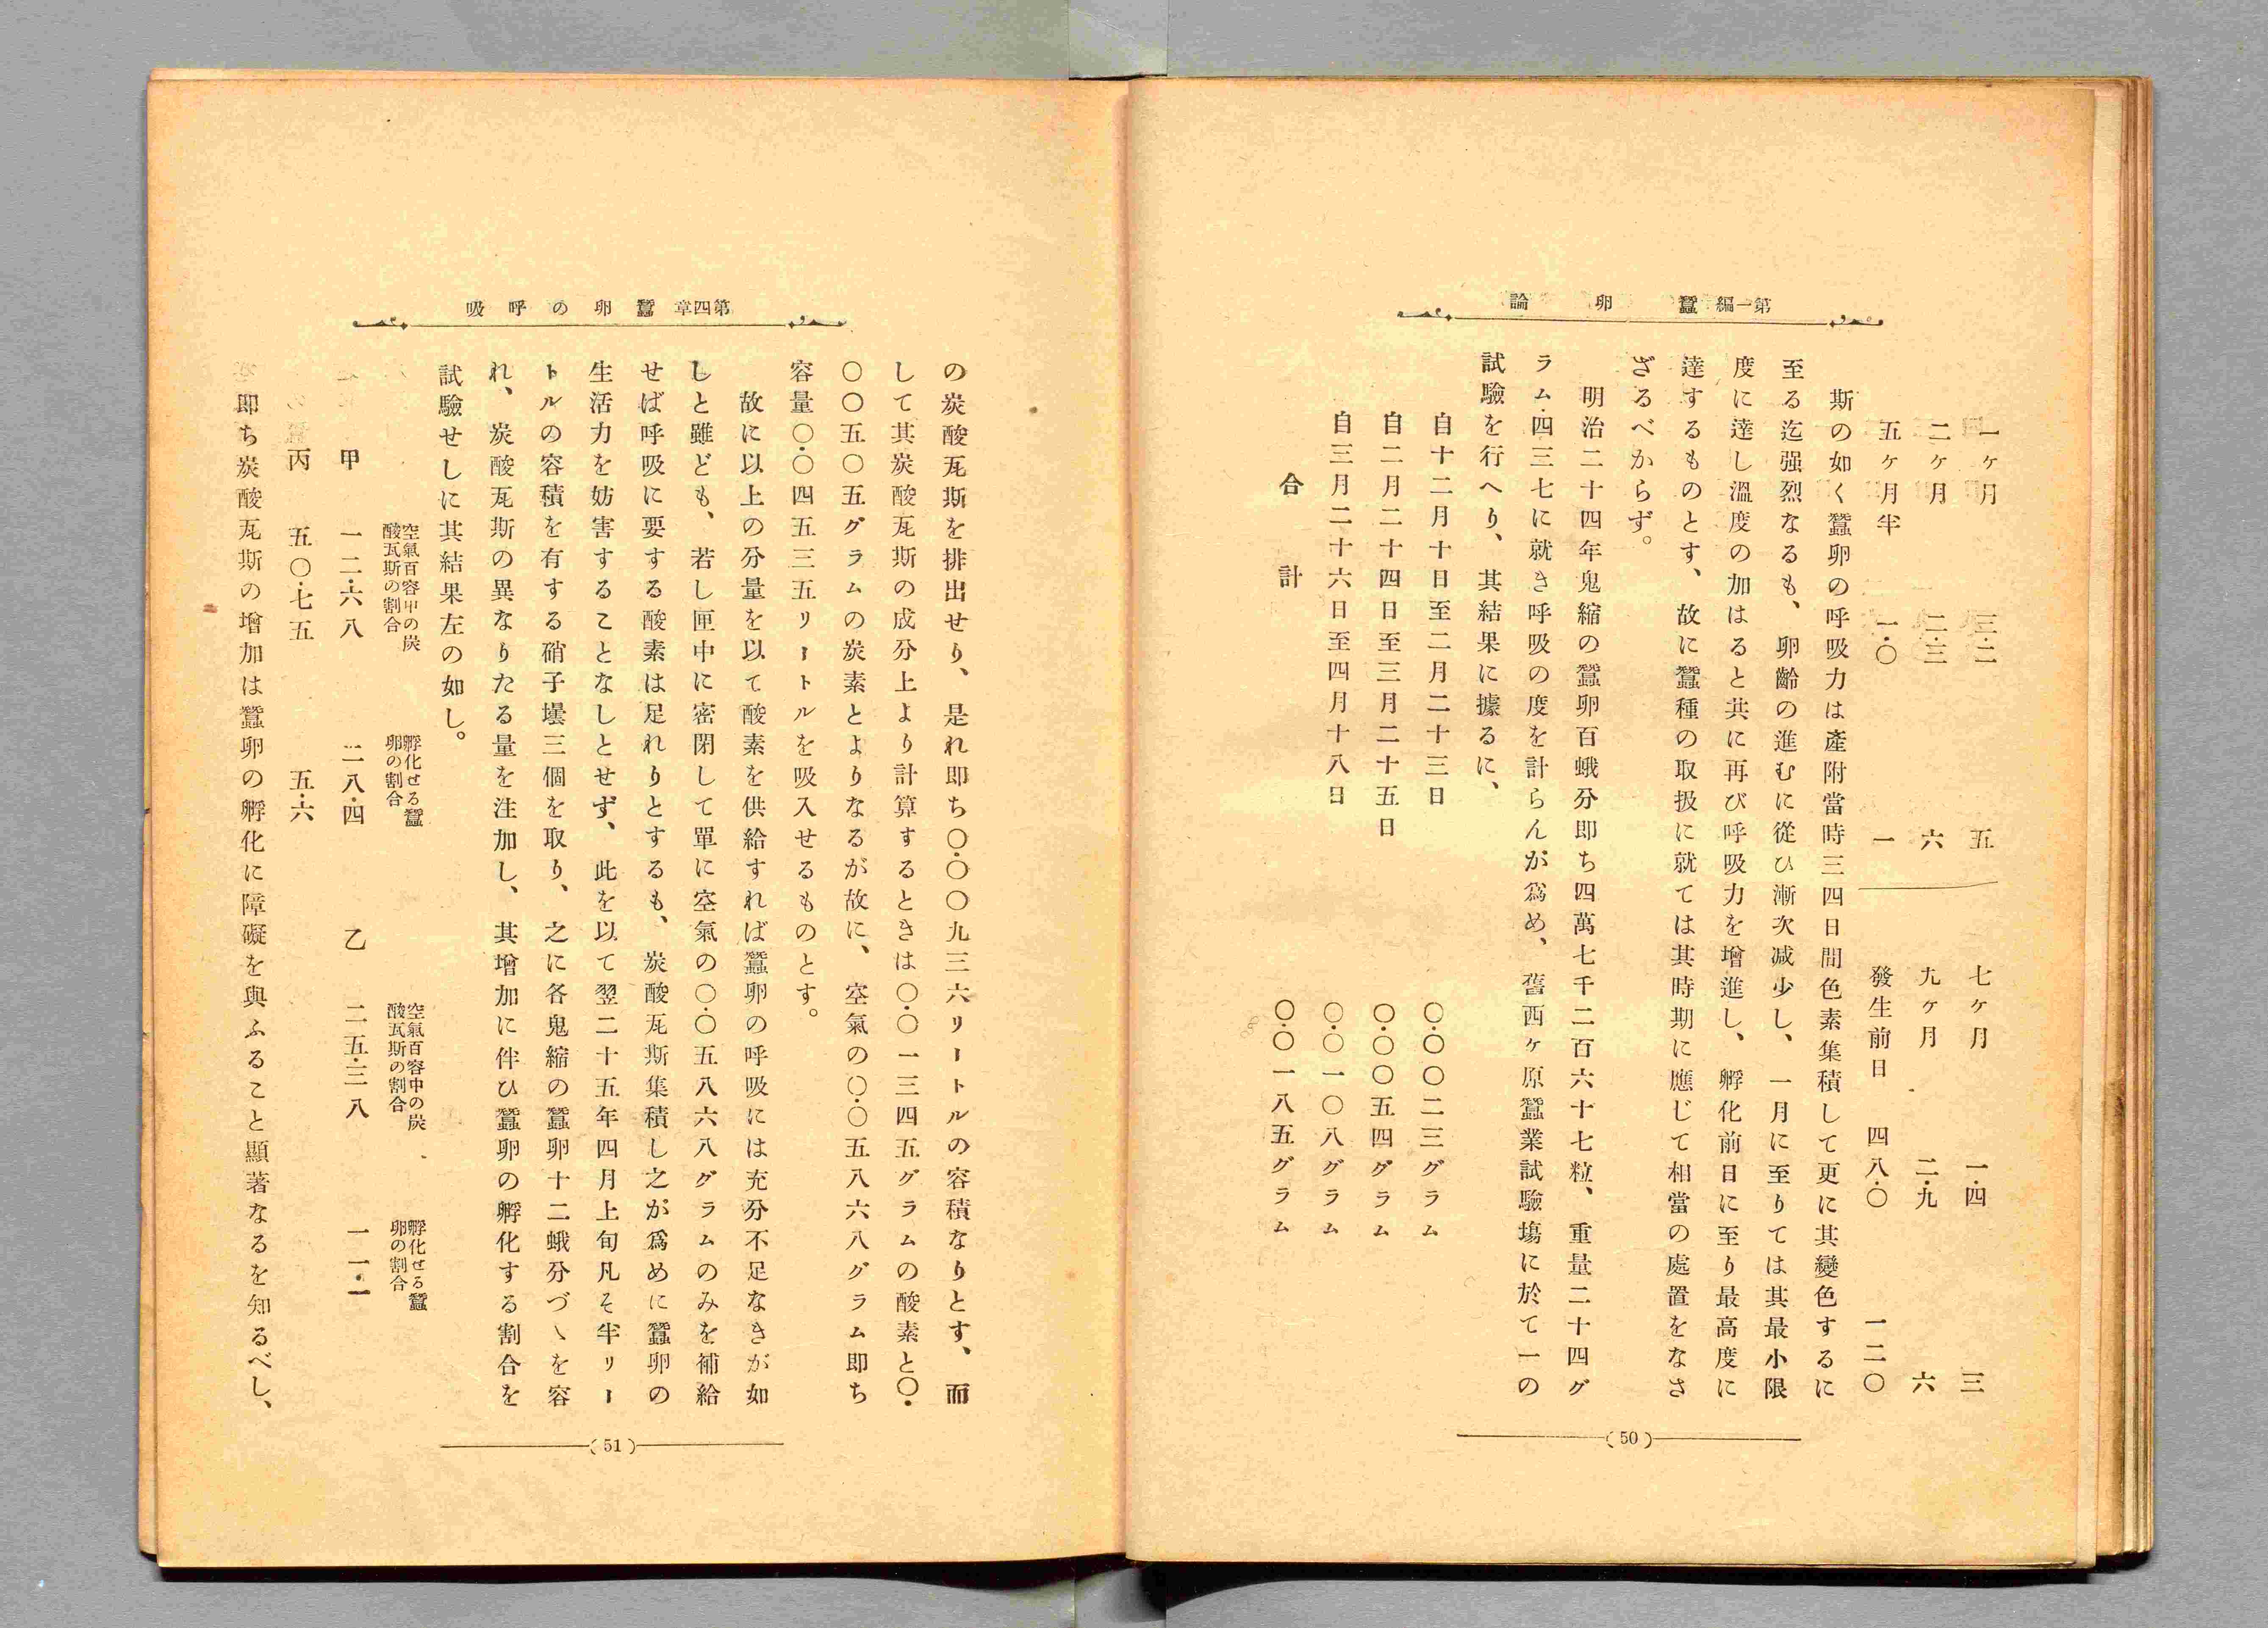 第一編 蠶卵論
一ケ月 三・二 五 七ケ月 一・四 三
二ケ月 二・三 六 九ケ月 二・九 六
五ケ月半 一・〇 一 發生前日 四八・〇 一二〇
斯の如く蠶卵の呼吸力は產附當時三四日間色素集積して更に其變色するに
至る迄强烈なるも、卵齡の進むに從ひ漸次减少し、一月に至りては其最小限
度に達し溫度の加はると共に再び呼吸力を增進し、孵化前日に至り最高度に
達するものとす、故に蠶種の取扱に就ては其時期に應じて相當の處置をなさ
ざるべからず。
明治二十四年鬼縮の蠶卵百蛾分即ち四萬七千二百六十七粒、重量二十四グ
ラム・四三七に就き呼吸の度を計らんが爲め、舊西ケ原蠶業試驗塲に於て一の
試驗を行へり、其結果に據るに、
自十二月十日至二月二十三日 〇・〇〇二三グラム
自二月二十四日至三月二十五日 〇・〇〇五四グラム
自三月二十六日至四月十八日 〇・〇一〇八グラム
合計 〇・〇一八五グラム
(50)
第四章 蠶卵の呼吸
の炭酸瓦斯を排出せり、是れ即ち〇・〇〇九三六リートルの容積なりとす、而
して其炭酸瓦斯の成分上より計算するときは〇・〇一三四五グラムの酸素と〇・
〇〇五〇五グラムの炭素とよりなるが故に、空氣の〇・〇五八六八グラム即ち
容量〇・〇四五三五リートルを吸入せるものとす。
故に以上の分量を以て酸素を供給すれば蠶卵の呼吸には充分不足なきが如
しと雖ども、若し匣中に密閉して單に空氣の〇・〇五八六八グラムのみを補給
せば呼吸に要する酸素は足れりとするも、炭酸瓦斯集積し之が爲めに蠶卵の
生活力を妨害することなしとせず、此を以て翌二十五年四月上旬凡そ半リー
トルの容積を有する硝子壜三個を取り、之に各鬼縮の蠶卵十二蛾分づゝを容
れ、炭酸瓦斯の異なりたる量を注加し、其增加に伴ひ蠶卵の孵化する割合を
試驗せしに其結果左の如し。
空氣百容中の炭酸瓦斯の割合 孵化せる蠶卵の割合 空氣百容中の炭酸瓦斯の割合 孵化せる蠶卵の割合
甲 一二・六八 二八・四 乙 二五・三八 一一・一
丙 五〇・七五 五・六
即ち炭酸瓦斯の增加は蠶卵の孵化に障礙を與ふること顯著なるを知るべし、
(51)